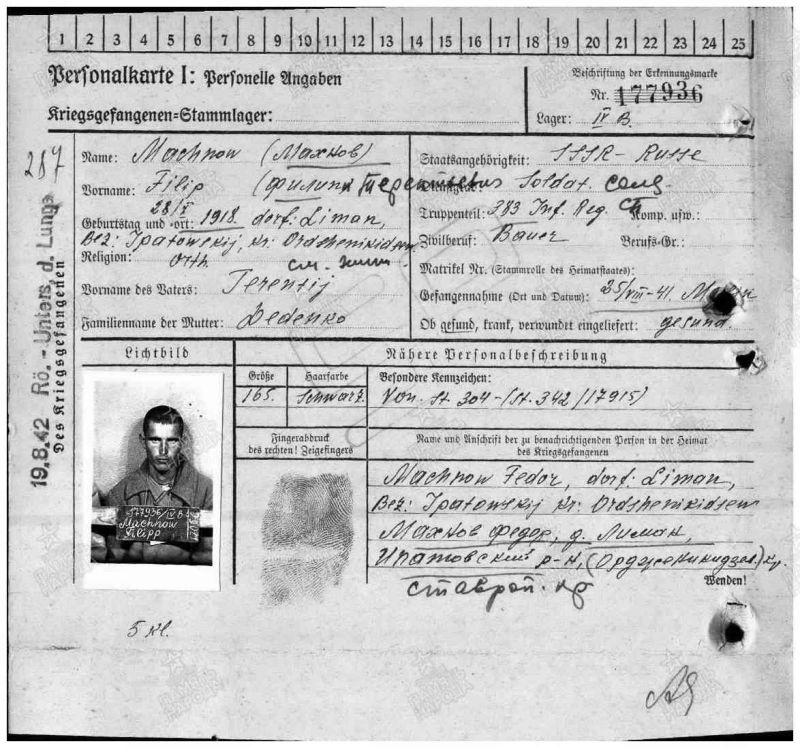 1 2 3 4 5 6 7 8 9 10 11 12 13 14 15 16 17 18 19 20 21 22 23 24 25
Personalkarte I: Personelle Angaben
Kriegsgefangenen-Stammlager:
Beschriftung der Erkennungsmarke
Nr. 177936
Lager: IV B.
287
19.8.42 Rö.-Unters. d. Lunge
Des Kriegsgefangenen
Name: Machnow (Махнов)
Vorname: Filip (Филипп
Geburtstag und -ort: 28/V 1918. dorf: Liman,
Bez: Ipatowskij, kr. Ordshenikidsen
Religion: Orth.
Vorname des Vaters: Terentij
Familienname der Mutter: Dedenko
Staatsangehörigkeit: SSSR-Russe
Soldat.
Truppenteil: 383 Inf. Reg. Komp. usw.:
Zivilberuf: Bauer Berufs-Gr.:
Matrikel Nr. (Stammrolle des Heimatstaates):
Gefangennahme (Ort und Datum): 25/VIII-41.
Ob gesund, krank, verwundet eingeliefert: gesund.
Lichtbild
177936/IV B
Machnow
Filipp
Nähere Personalbeschreibung
Größe
165.
Haarfarbe
Schwarz.
Besondere Kennzeichen:
Von. St 304-(St. 342/17915)
Fingerabdruck
des rechten! Zeigefingers
Name und Anschrift der zu benachrichtigenden Person in der Heimat
des Kriegsgefangenen
Machnow Fedor, dorf: Liman,
Bez: Ipatowskij kr. Ordshenikidsen
Махнов Федор, д. Лиман,
Ипатовский р-н, (Орджоникидзев.) кр.
Ставроп. кр
Wenden!
5 Kl.